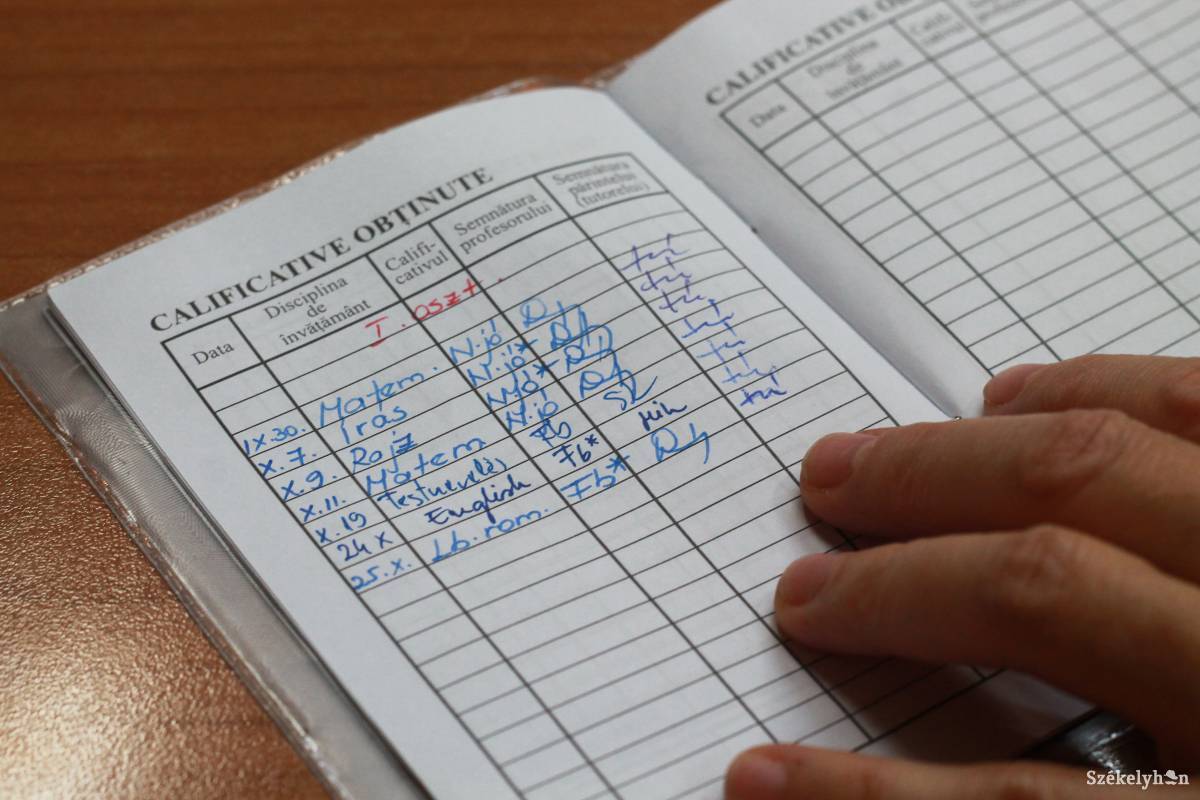 CALIFICATIVE OBȚINUTE
Data Disciplina de învățământ Califi-cativul Semnătura profesorului Semnătura părintelui (tutorelui)
I. oszt.
IX.30. Matem. N.jó
X.7. Írás N.jó*
X.9. Rajz
X.11. Matem. N.jó
X.19 Testnevelés Fb
24 X English Fb*
25.X. Lb. rom. Fb*
CALIFICATIVE
Data Disciplina de învățământ
Székelyhon